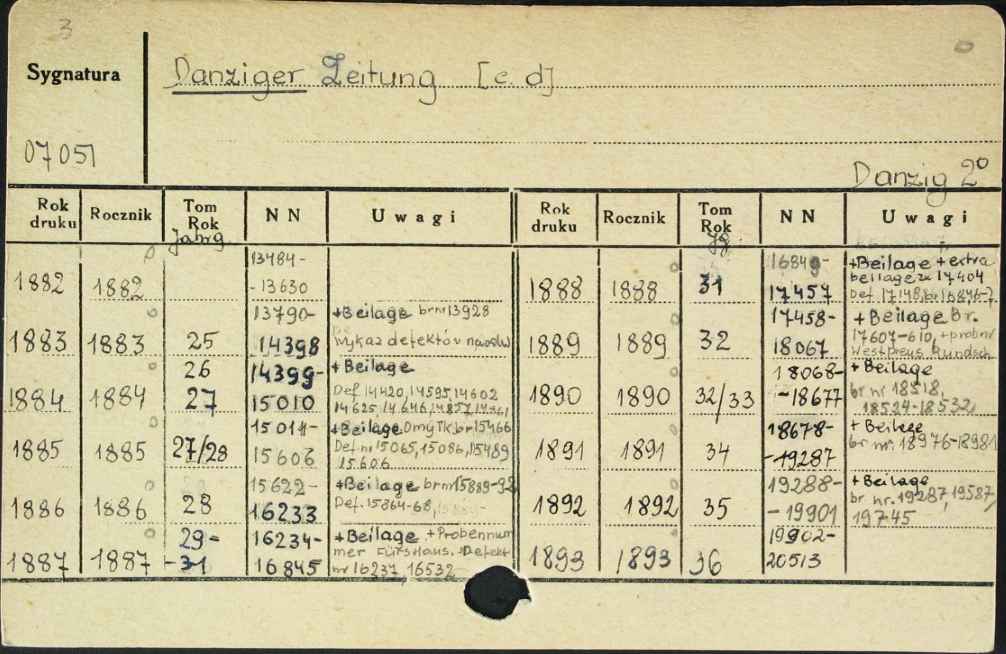 3
Sygnatura
Danziger Zeitung [c. d]
07051
Danzig 2°
Rok druku Rocznik Tom Rok NN Uwagi
Jahrg.
1882 1882 13484-
-13630
1883 1883 25 13790- 14398 +Beilage br nr 13928
wykaz defektów na osłw
1884 1884 26 27 14399- 15010 + Beilage
Def. 14420, 14595, 14602
14625, 14646, 14857,
1885 1885 27/28 15011- 15606 +Beilage Omyłk. br 15466
Def. nr 15065, 15086, 15489
15606
1886 1886 28 15622- 16233 +Beilage br nr 15889-92
Def. 15864-68,
1887 1887 29- -31 16234- 16845 +Beilage +Probennum
mer Fürs Haus. Defekt
nr 16237, 16532
Rok druku Rocznik Tom Rok NN Uwagi
Jg.
1888 1888 31 16849- 17457 +Beilage + extra
beilage zu 17404
Def. 17148,
1889 1889 32 17458- 18067 + Beilage Br.
17607-610, + probnr
Westpreus Rundsch.
1890 1890 32/33 18068- -18677 + Beilage
br nr 18518,
18524-18532
1891 1891 34 18678- -19287 + Beilage
br nr. 18976-18981
1892 1892 35 19288- -19901 + Beilage
br nr. 19287, 19587,
19745
1893 1893 36 19902- 20513